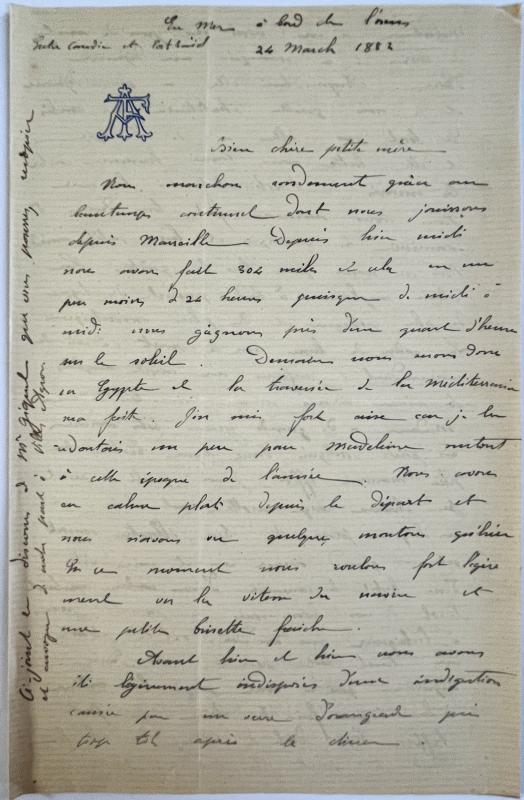 En Mer à bord de l'oxus
Entre Candie et Port Saïd 24 March 1882
AF
Bien chère petite mère
Nous marchons rondement grâce au
beau temps continuel dont nous jouissons
depuis Marseille Depuis hier midi
nous avons fait 304 miles et cela en un
peu moins de 24 heures puisque de midi à
midi nous gagnons près d'un quart d'heure
sur le soleil. Demain nous serons donc
en Egypte et la traversée de la Méditerranée
sera faite. J'en suis fort aise car je la
redoutais un peu pour Madeleine surtout
à cette époque de l'année. Nous avons
eu calme plat depuis le départ et
nous n'avons vu quelques moutons qu'hier
En ce moment nous roulons fort légère
ment vu la vitesse du navire et
une petite brisette fraîche.
Avant hier et hier nous avons
été légèrement indisposés d'une indigestion
causée par un verre d'orangeade pris
trop tôt après le dîner.
Ci-joint le discours de Mr que vous pourrez
et de notre part à